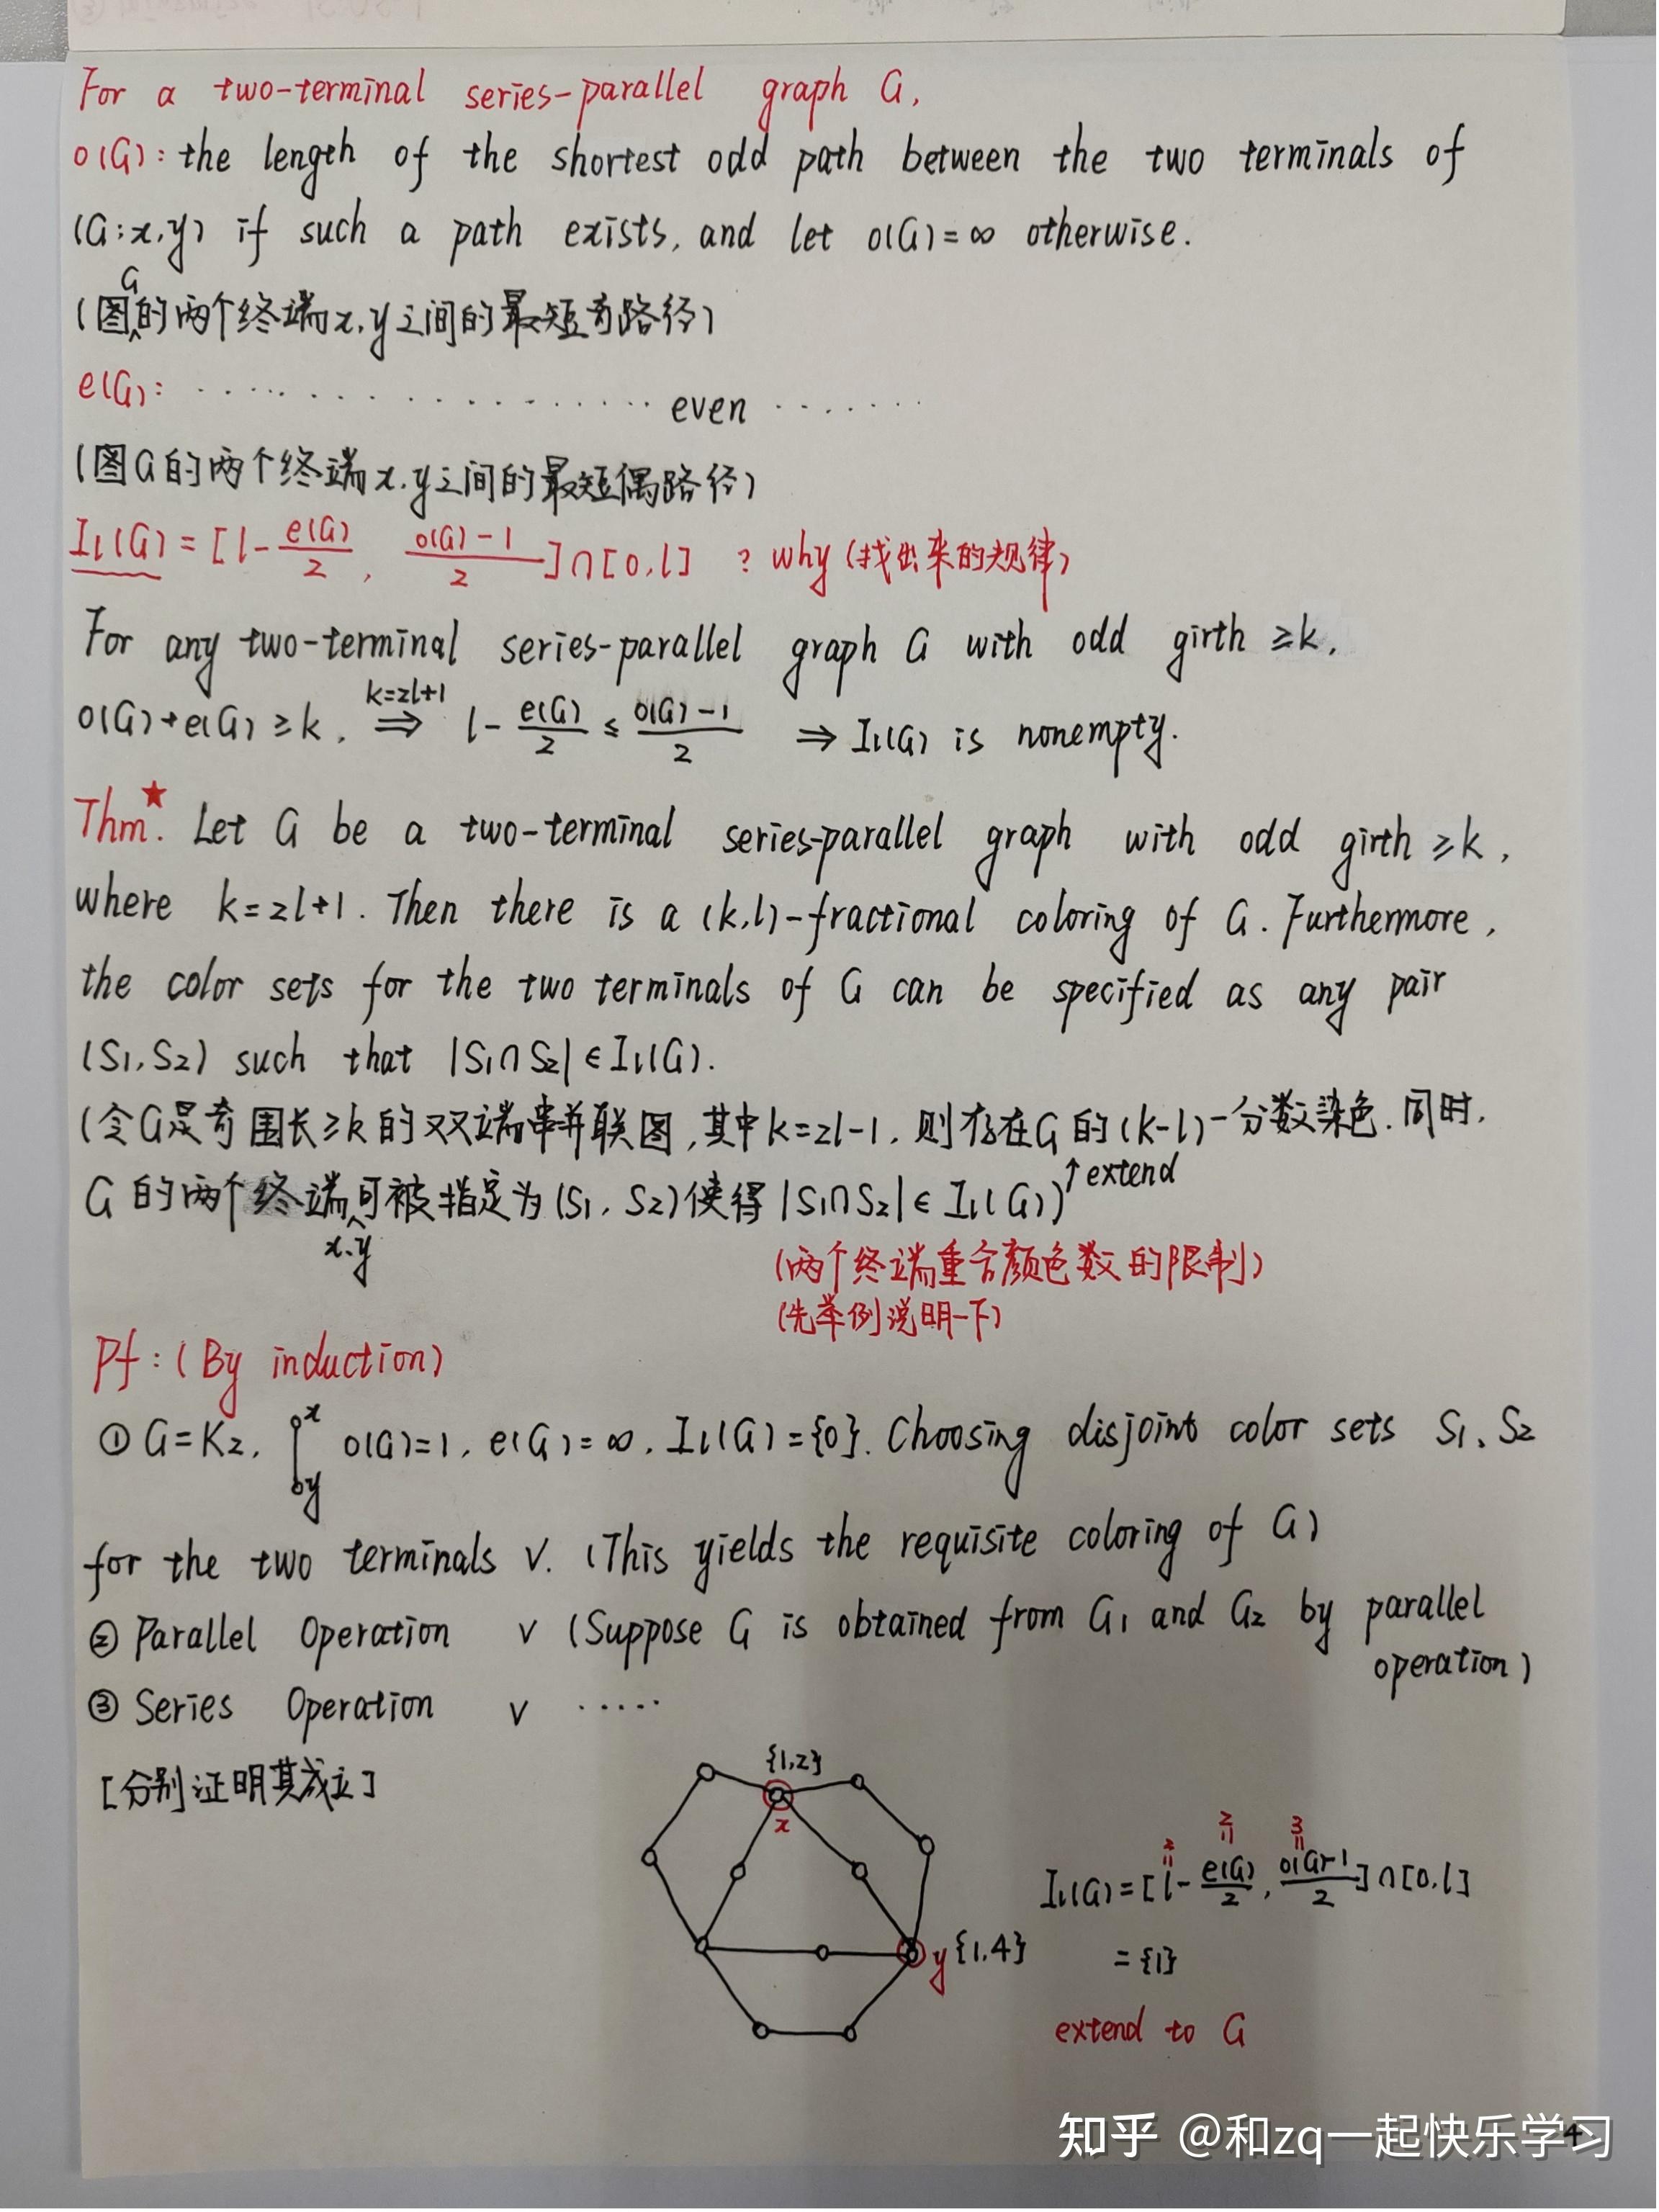 For a two-terminal series-parallel graph G,
o(G): the length of the shortest odd path between the two terminals of
(G;x,y) if such a path exists, and let o(G)=∞ otherwise.
(图G的两个终端x,y之间的最短奇路径)
e(G): ··················· even ·······
(图G的两个终端x,y之间的最短偶路径)
I_l(G) = [l - e(G)/2, (o(G)-1)/2] ∩ [0,l] ? why (找出来的规律)
For any two-terminal series-parallel graph G with odd girth ≥k,
o(G)+e(G)≥k, k=2l+1 ⇒ l - e(G)/2 ≤ (o(G)-1)/2 ⇒ I_l(G) is nonempty.
Thm★. Let G be a two-terminal series-parallel graph with odd girth ≥k,
where k=2l+1. Then there is a (k,l)-fractional coloring of G. Furthermore,
the color sets for the two terminals of G can be specified as any pair
(S1,S2) such that |S1∩S2|∈I_l(G).
(令G是奇围长≥k的双双端串并联图,其中k=2l-1,则存在G的(k-l)-分数染色.同时,
G的两个终端x,y可被指定为(S1,S2)使得|S1∩S2|∈I_l(G)) ↑extend
(两个终端重合颜色数的限制)
(先举例说明一下)
Pf: (By induction)
① G=K2, x y o(G)=1, e(G)=∞, I_l(G)={0}. Choosing disjoint color sets S1、S2
for the two terminals √. (This yields the requisite coloring of G)
② Parallel Operation √ (Suppose G is obtained from G1 and G2 by parallel
operation)
③ Series Operation √ ·····
[分别证明其成立]
{1,2}
x
y {1,4}
2 2 3
I_l(G) = [l - e(G)/2, (o(G)-1)/2] ∩ [0,l]
= {1}
extend to G
4
知乎 @和zq一起快乐学习